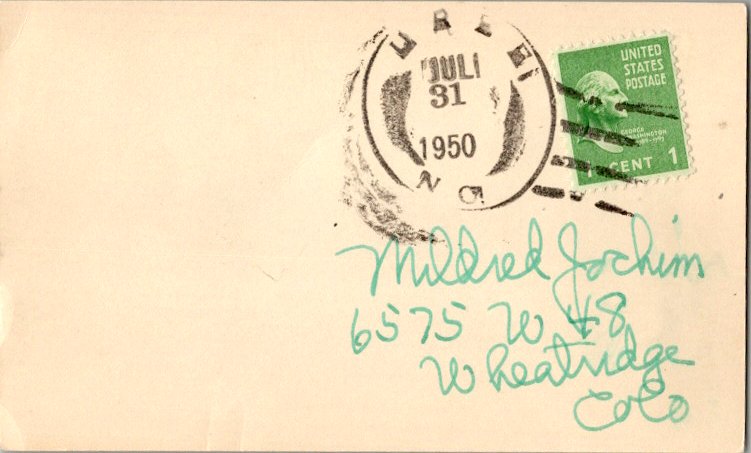 JUL
31
1950
N C
UNITED
STATES
POSTAGE
GEORGE
WASHINGTON
1 CENT 1
Mildred Jochim
6575 W 48
Wheatridge
Colo